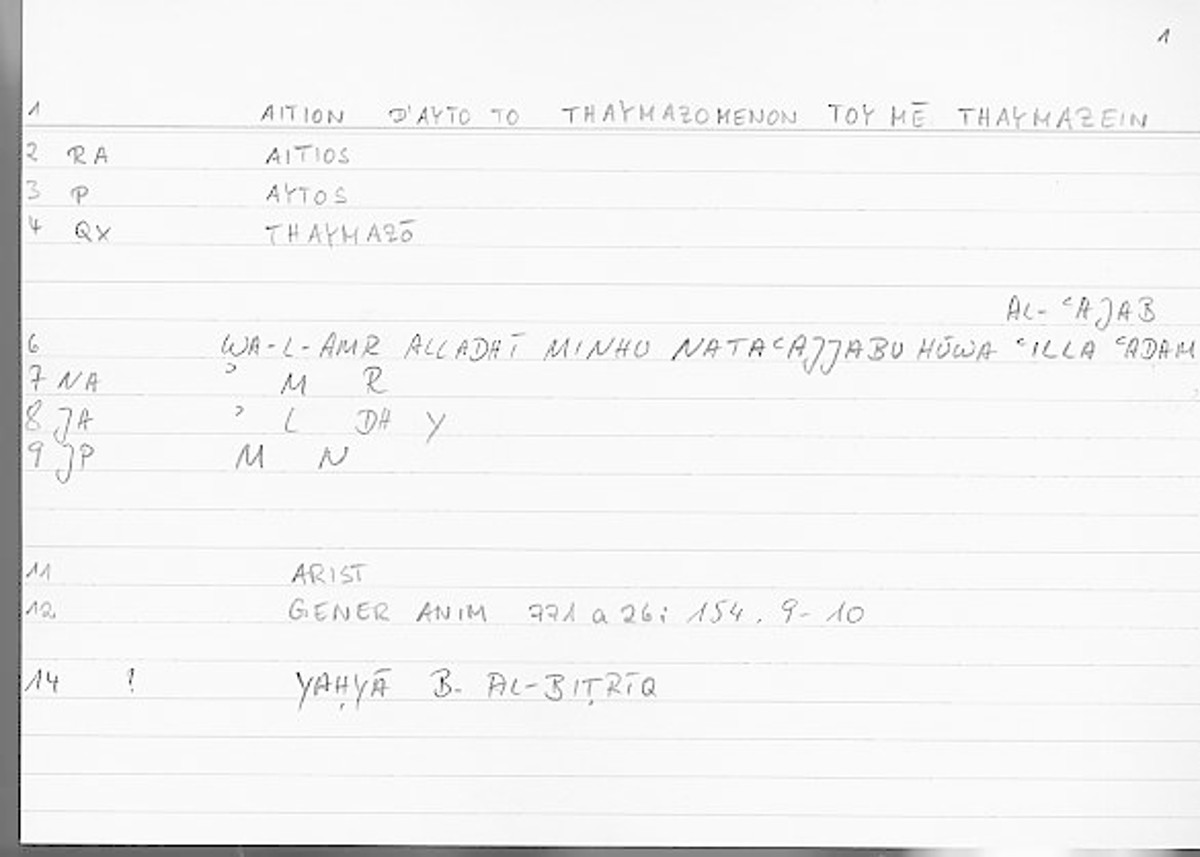 1
1 AITION D'AYTO TO THAYMAZOMENON TOY MĒ THAYMAZEIN
2 RA AITIOS
3 P AYTOS
4 QX THAYMAZŌ
AL-ʿAJAB
6 WA-L-AMR ALLADHĪ MINHU NATAʿAJJABU HŪWA ʿILLA ʿADAM
7 NA ʾ M R
8 JA ʾ L DH Y
9 JP M N
11 ARIST
12 GENER ANIM 771 a 26; 154. 9-10
14 ! YAḤYĀ B. AL-BIṬRĪQ